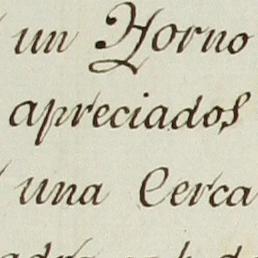 un Horno
apreciados
una Cerca